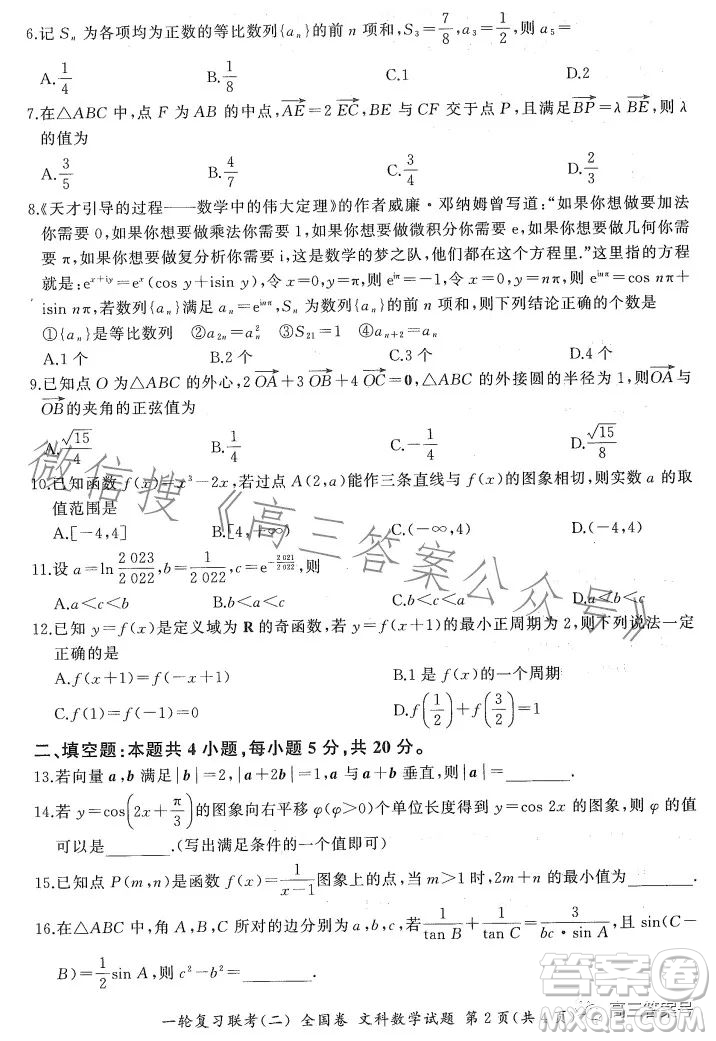 6.记 Sₙ 为各项均为正数的等比数列{aₙ}的前 n 项和,S₃=7/8,a₃=1/2,则 a₅=
A.1/4 B.1/8 C.1 D.2
7.在△ABC 中,点 F 为 AB 的中点,AE→=2 EC→,BE 与 CF 交于点 P,且满足BP→=λ BE→,则 λ
的值为
A.3/5 B.4/7 C.3/4 D.2/3
8.《天才引导的过程——数学中的伟大定理》的作者威廉·邓纳姆曾写道:“如果你想要做加法
你需要 0,如果你想要做乘法你需要 1,如果你想要做微积分你需要 e,如果你想要做几何你需
要 π,如果你想要做复分析你需要 i,这是数学的梦之队,他们都在这个方程里.”这里指的方程
就是:e^(x+iy)=e^x(cos y+isin y),令 x=0,y=π,则 e^(iπ)=-1,令 x=0,y=nπ,则 e^(inπ)=cos nπ+
isin nπ,若数列{aₙ}满足 aₙ=e^(inπ),Sₙ 为{aₙ}的前 n 项和,则下列结论正确的个数是
①{aₙ}是等比数列 ②a₂ₙ=aₙ² ③S₂₁=1 ④aₙ₊₂=aₙ
A.1 个 B.2 个 C.3 个 D.4 个
9.已知点 O 为△ABC 的外心,2 OA→+3 OB→+4 OC→=0,△ABC 的外接圆的半径为 1,则OA→与
OB→的夹角的正弦值为
A.√15/4 B.1/4 C.-1/4 D.√15/8
10.已知函数 f(x)=x³-2x,若过点 A(2,a)能作三条直线与 f(x)的图象相切,则实数 a 的取
值范围是
A.[-4,4] B.[4,+∞) C.(-∞,4) D.(-4,4)
11.设 a=ln 2 023/2 022,b=1/2 022,c=e^(-2 021/2 022),则
A.a<c<b B.b<a<c C.b<c<a D.a<b<c
12.已知 y=f(x)是定义域为 R 的奇函数,若 y=f(x+1)的最小正周期为 2,则下列说法一定
正确的是
A.f(x+1)=f(x) B.1 是 f(x)的一个周期
C.f(1)=f(-1)=0 D.f(1/2)+f(3/2)=1
二、填空题:本题共 4 小题,每小题 5 分,共 20 分。
13.若向量 a,b 满足|b|=2,|a+2b|=1,若 a+b 与 a 垂直,则|a|=______.
14.若 y=cos(2x+π/3)的图象向右平移 φ(φ>0)个单位长度得到 y=cos 2x 的图象,则 φ 的值
可以是______.(写出满足条件的一个值即可)
15.已知点 P(m,n)是函数 f(x)=1/(x-1)图象上的点,当 m>1 时,2m+n 的最小值为______.
16.在△ABC 中,角 A,B,C 所对的边分别为 a,b,c,若1/tan B+1/tan C=3/(bc·sin A),且 sin(C-
B)=1/2 sin A,则 c²-b²=______.
一轮复习联考(二) 全国卷 文科数学试题 第 2 页(共
页)
微信搜《高三答案公众号》
答案圈
高三答案号